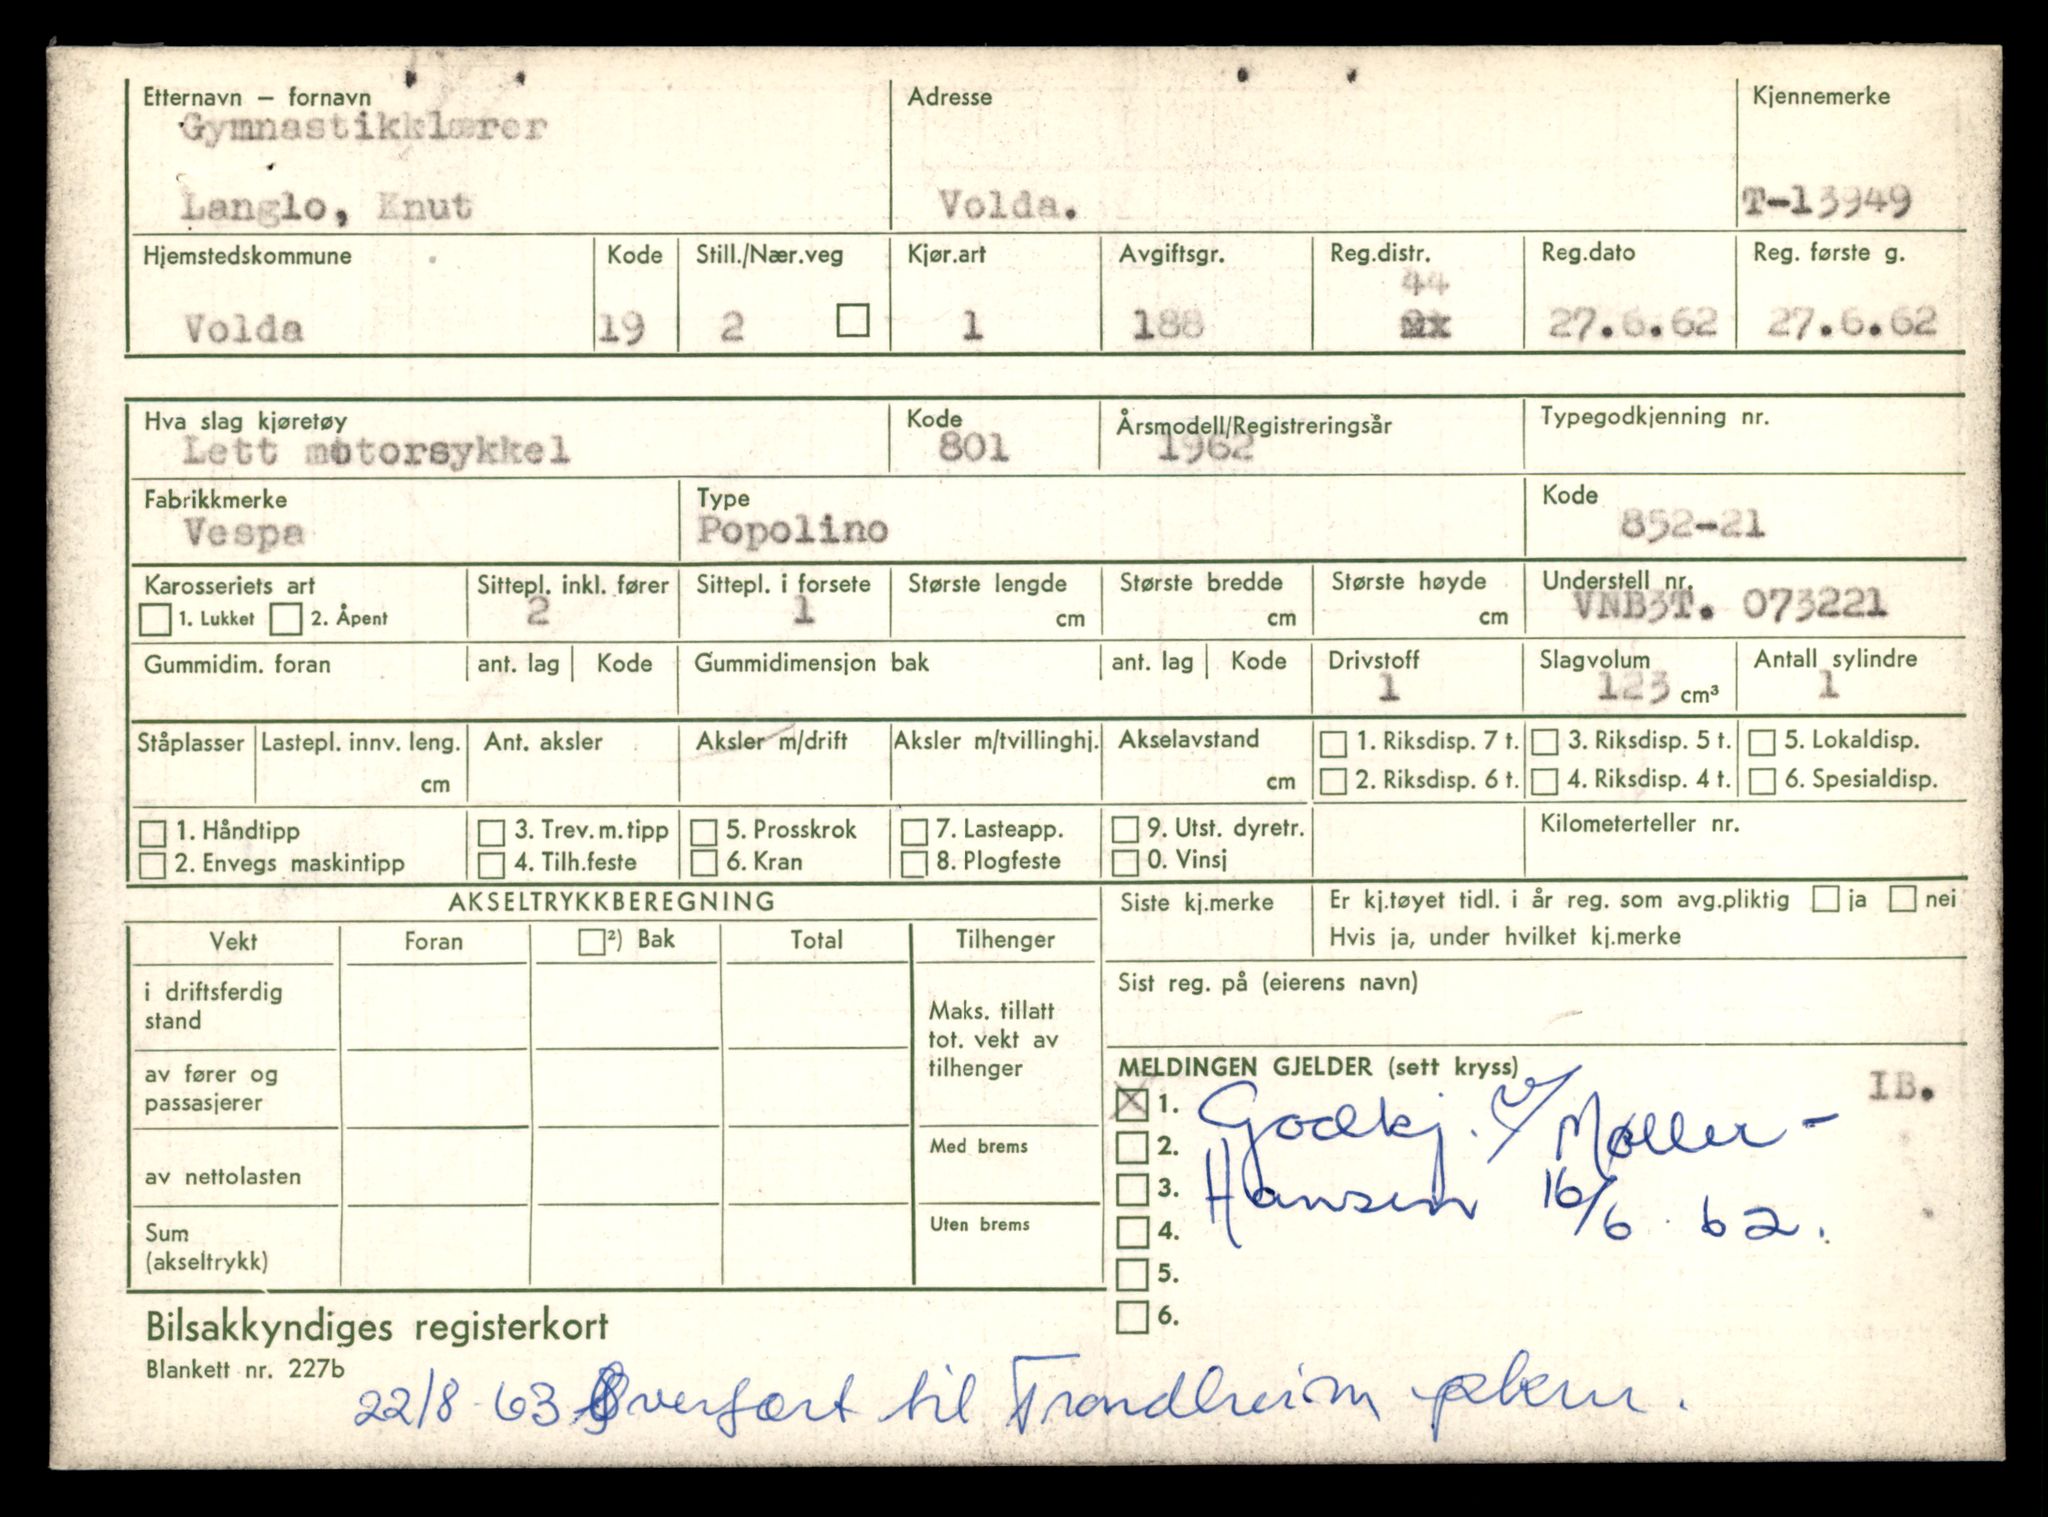 Etternavn – fornavn Adresse Kjennemerke
Gymnastikklærer
Langlo, Knut Volda. T-13949
Hjemstedskommune Kode Still./Nær.veg Kjør.art Avgiftsgr. Reg.distr. Reg.dato Reg. første g.
44
Volda 19 2 1 188 27.6.62 27.6.62
Hva slag kjøretøy Kode Årsmodell/Registreringsår Typegodkjenning nr.
Lett motorsykkel 801 1962
Fabrikkmerke Type Kode
Vespa Popolino 852-21
Karosseriets art Sittepl. inkl. fører Sittepl. i forsete Største lengde Største bredde Største høyde Understell nr.
1. Lukket 2. Åpent 2 1 cm cm cm VNB3T. 073221
Gummidim. foran ant. lag Kode Gummidimensjon bak ant. lag Kode Drivstoff Slagvolum Antall sylindre
1 123 cm³ 1
Ståplasser Lastepl. innv. leng. Ant. aksler Aksler m/drift Aksler m/tvillinghj. Akselavstand 1. Riksdisp. 7 t. 3. Riksdisp. 5 t. 5. Lokaldisp.
cm cm 2. Riksdisp. 6 t. 4. Riksdisp. 4 t. 6. Spesialdisp.
1. Håndtipp 3. Trev. m. tipp 5. Prosskrok 7. Lasteapp. 9. Utst. dyretr. Kilometerteller nr.
2. Envegs maskintipp 4. Tilh.feste 6. Kran 8. Plogfeste 0. Vinsj
AKSELTRYKKBEREGNING Siste kj.merke Er kj.tøyet tidl. i år reg. som avg.pliktig ja nei
Hvis ja, under hvilket kj.merke
Vekt Foran ²) Bak Total Tilhenger
Sist reg. på (eierens navn)
i driftsferdig
stand
Maks. tillatt
tot. vekt av
tilhenger
av fører og
passasjerer
Med brems
av nettolasten
Uten brems
Sum
(akseltrykk)
MELDINGEN GJELDER (sett kryss)
IB.
X 1. Godkj. v/ Møller-
2.
3. Hansen 16/6 62.
4.
5.
6.
Bilsakkyndiges registerkort
Blankett nr. 227b
22/8 63 Overført til Trondheim